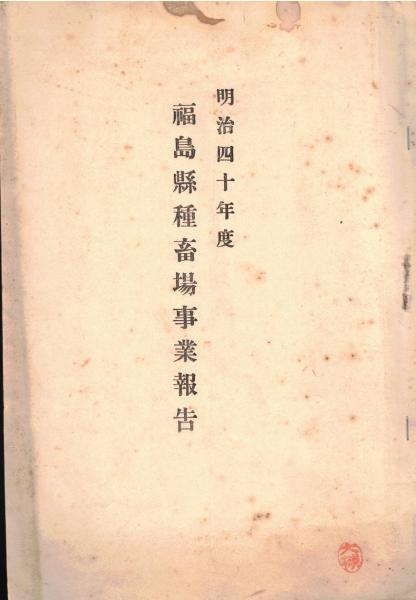 明治四十年度
福島縣種畜場事業報告